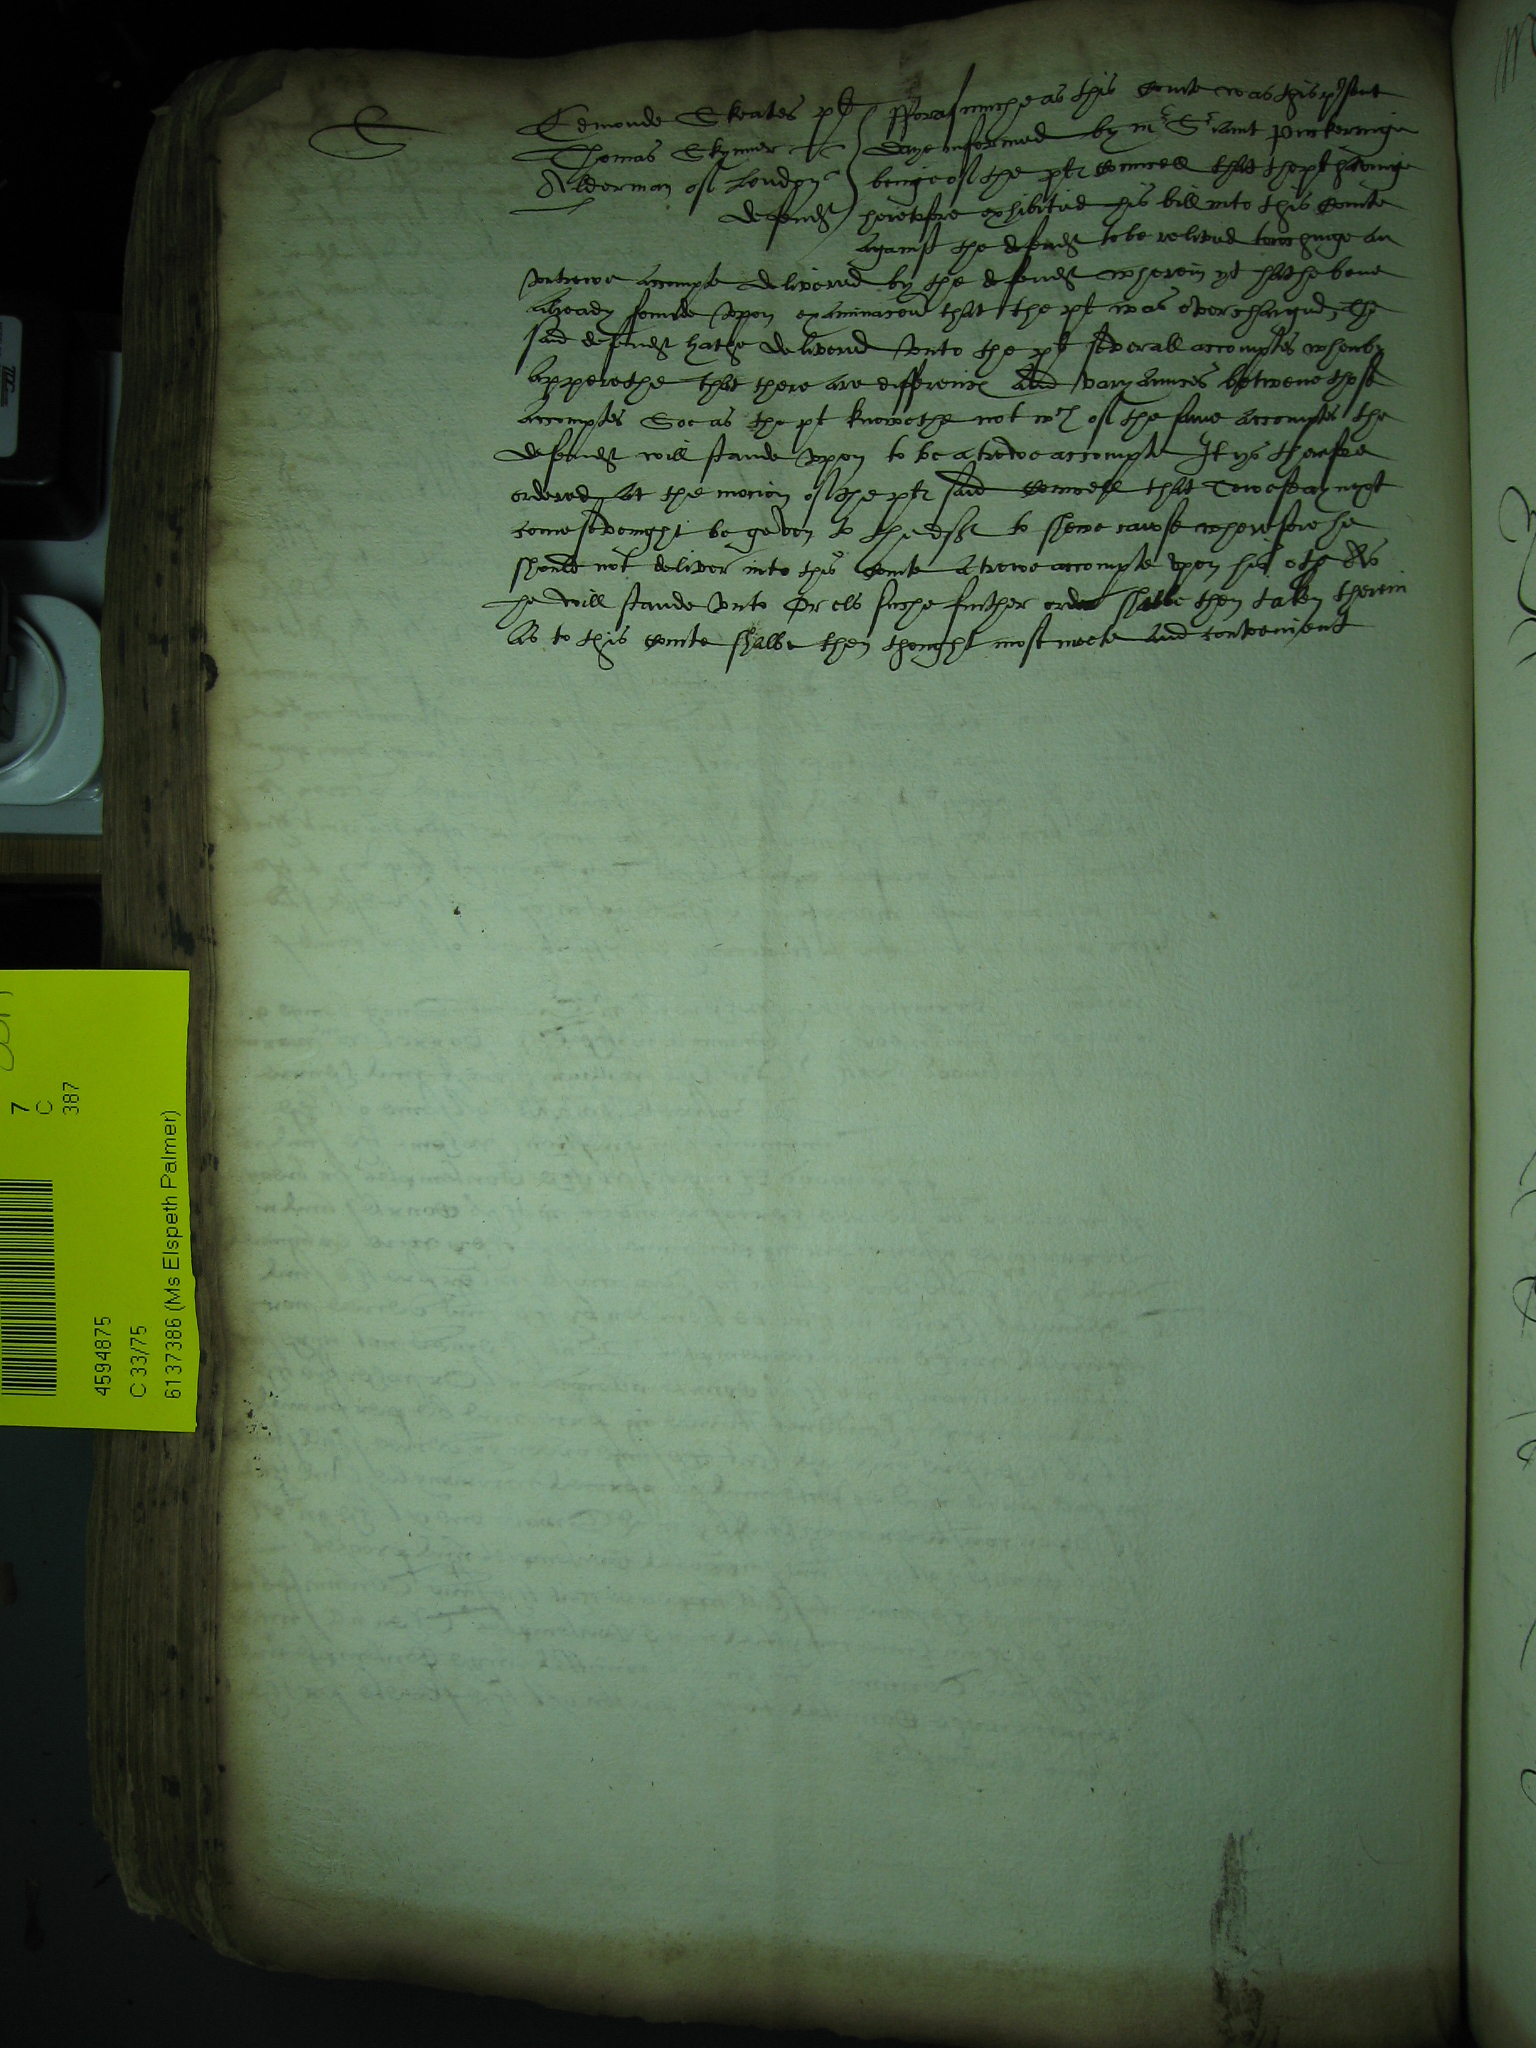 S
Edmonde Skeates plt
Thomas Skynner
Alderman of London
defendt
fforasmuche as this Courte was this pñt
daye informed by mr Siant Puckeringe
beinge of the plts Councell that the plt havinge
heretofore exhibited his bill into this Courte
against the defendt to be relived towchinge an
untrewe accompte delivered by the defendt wherein yt hathe bene
already founde upon examinacon that the plt was overcharged, The
said defendt hathe delivered unto the plt severall accomptes wherby
apperethe that there are differences and varyaunces betwene those
accomptes Soe as the plt knowethe not wch of the same accomptes the
defendt will stande upon to be a trewe accompte It ys therfore
ordered at the mocion of the plts said Councell that Tewesday next
come sevenight be geven to the deft to shewe cawse wherefore he
should not deliver into this Courte a trewe accompte upon his othe As
he will stande unto Or els suche further order shalbe then taken therein
As to this Courte shalbe then thought most meete and convenient
7
C
387
4594875
C 33/75
6137386 (Ms Elspeth Palmer)